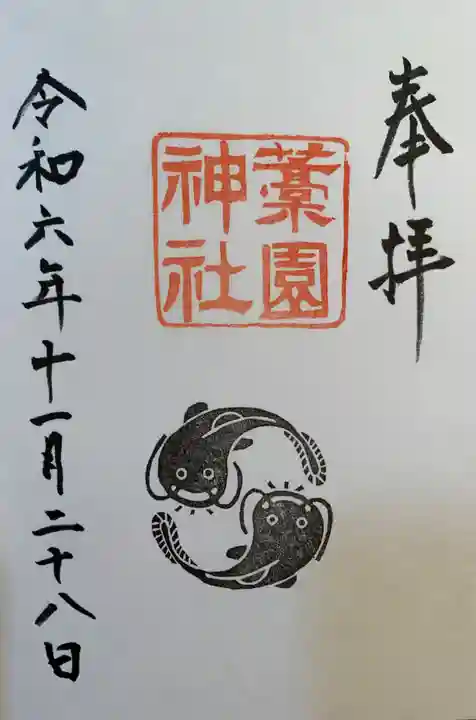 奉拝
藁園
神社
令和六年十一月二十八日